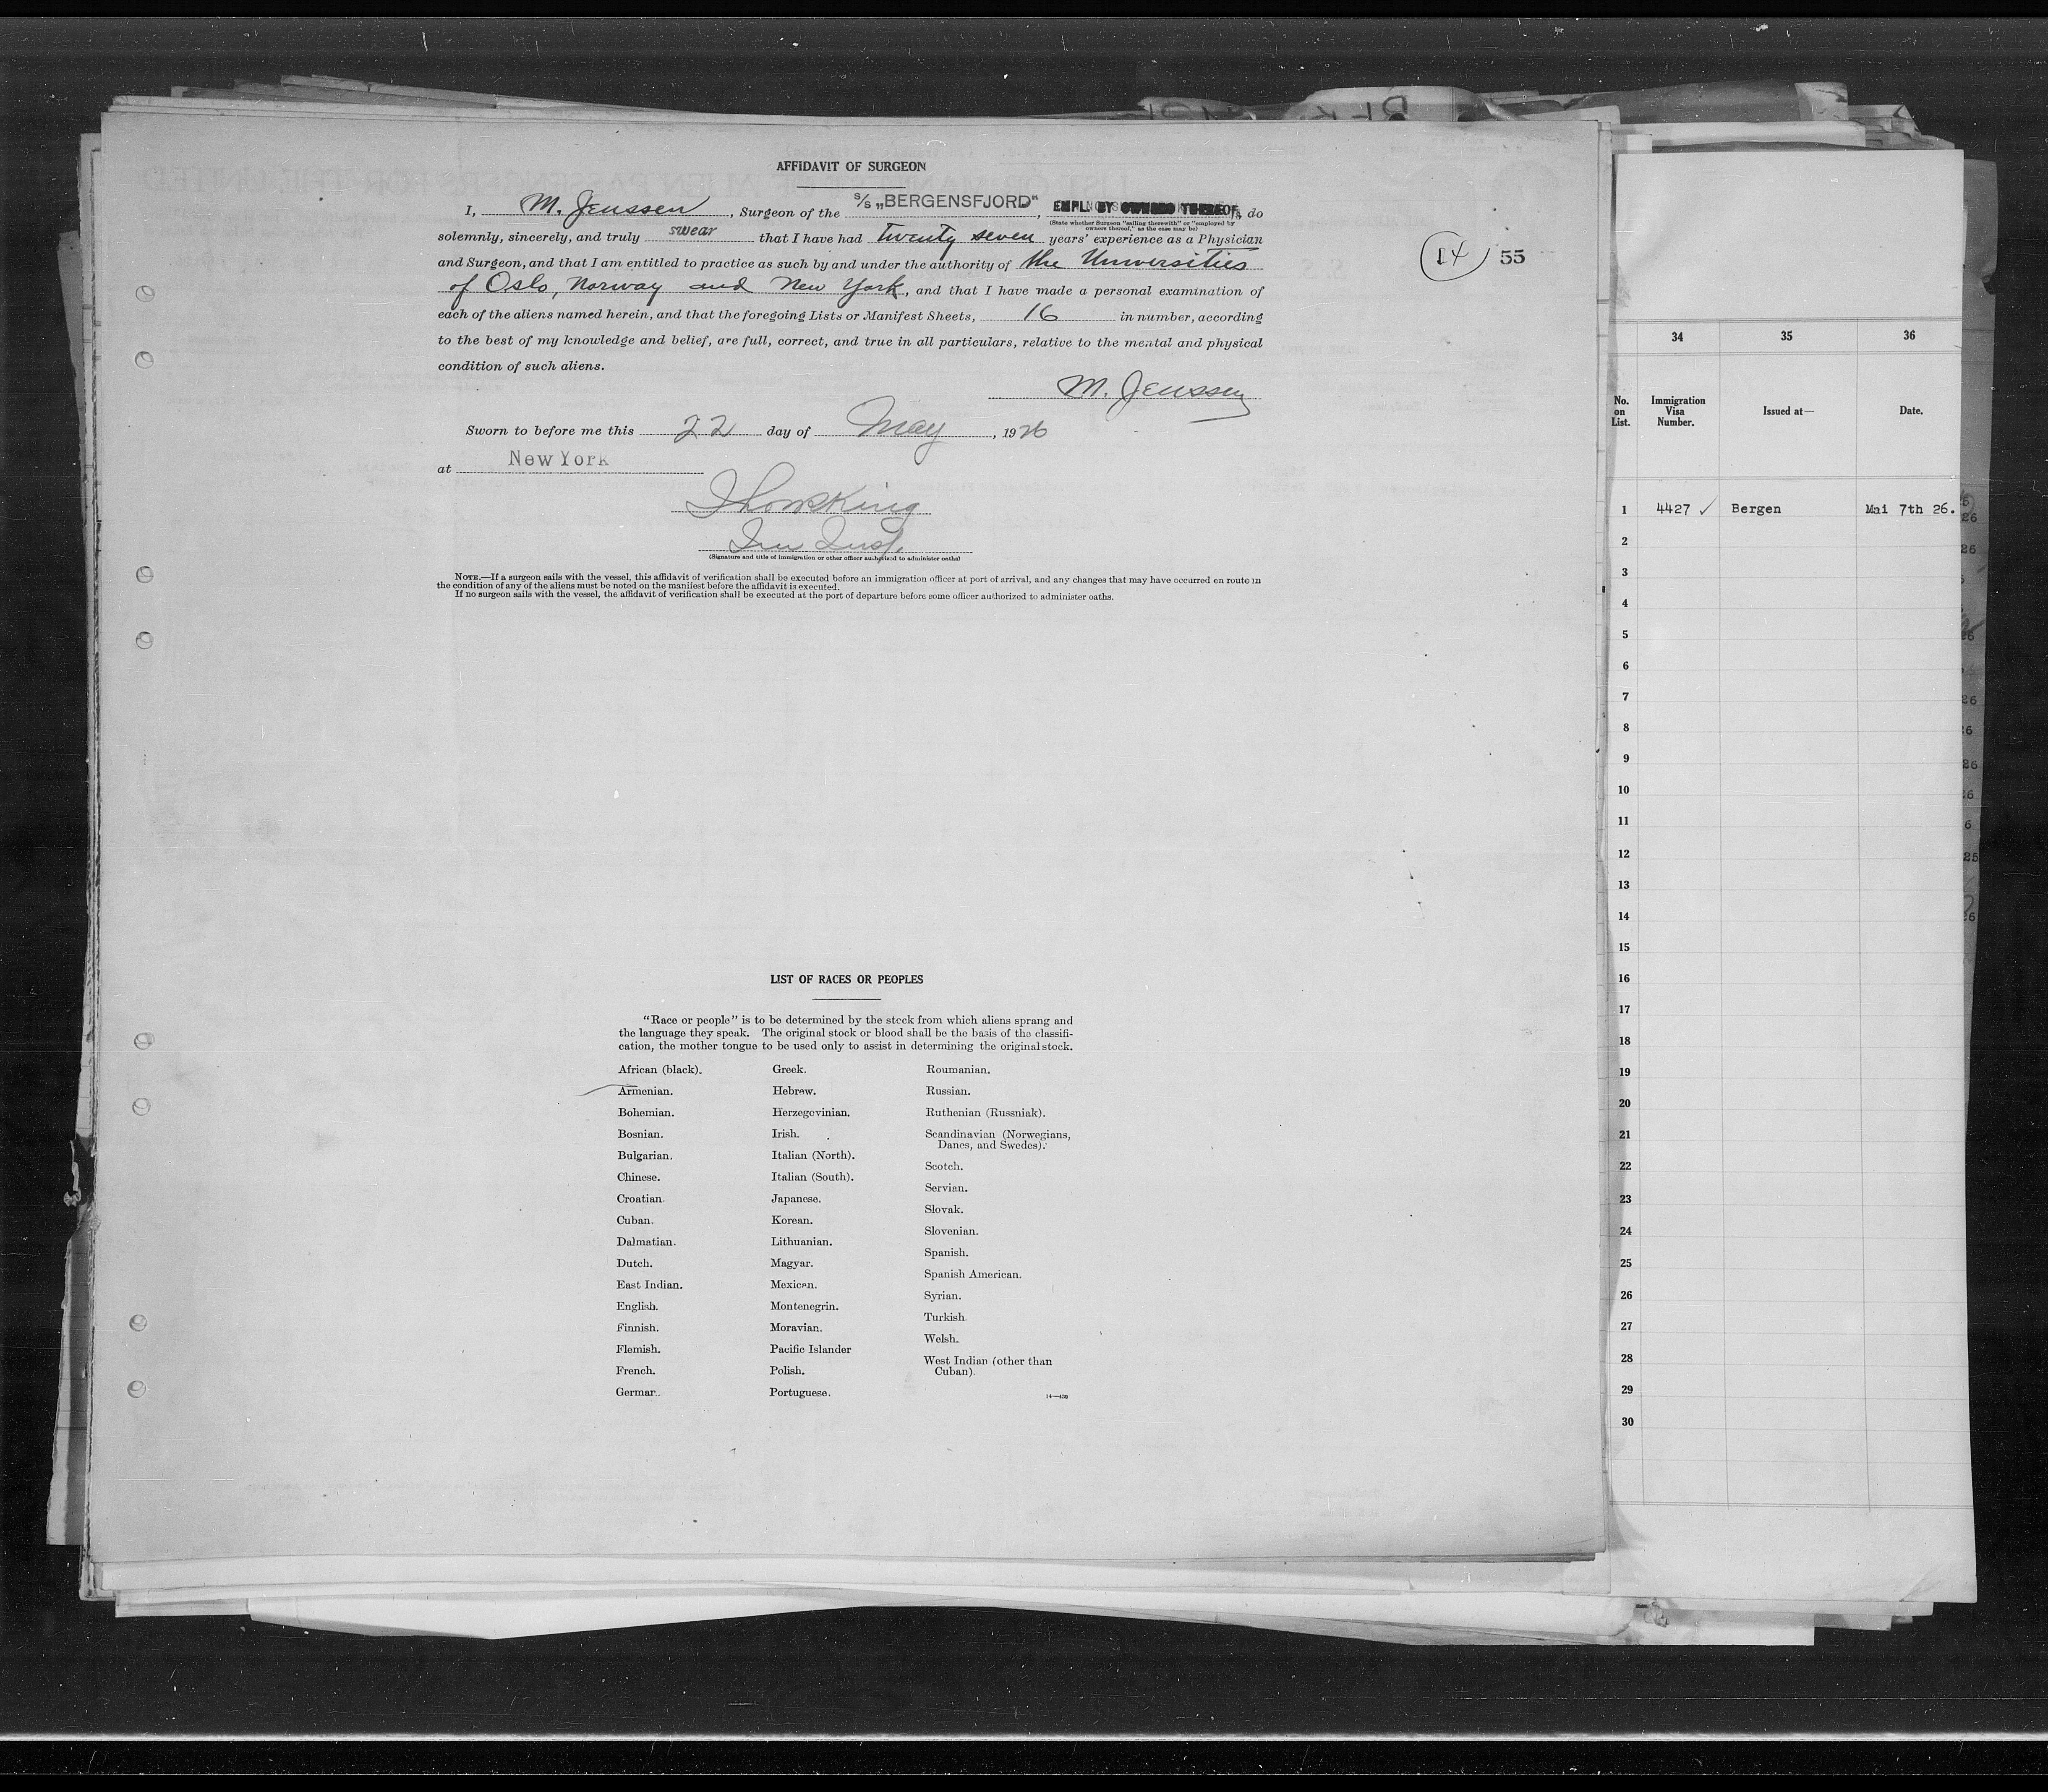 AFFIDAVIT OF SURGEON
I, M. Jenssen, Surgeon of the S/S „BERGENSFJORD", EMPL. BY OWNERS THEREOF, do
(State whether Surgeon "sailing therewith" or "employed by owners thereof," as the case may be)
solemnly, sincerely, and truly swear that I have had twenty seven years' experience as a Physician
and Surgeon, and that I am entitled to practice as such by and under the authority of the Universities
of Oslo, Norway and New York, and that I have made a personal examination of
each of the aliens named herein, and that the foregoing Lists or Manifest Sheets, 16 in number, according
to the best of my knowledge and belief, are full, correct, and true in all particulars, relative to the mental and physical
condition of such aliens.
M. Jenssen
Sworn to before me this 22 day of May, 1926
at New York
Imm Insp.
(Signature and title of immigration or other officer authorized to administer oaths)
NOTE.—If a surgeon sails with the vessel, this affidavit of verification shall be executed before an immigration officer at port of arrival, and any changes that may have occurred en route in
the condition of any of the aliens must be noted on the manifest before the affidavit is executed.
If no surgeon sails with the vessel, the affidavit of verification shall be executed at the port of departure before some officer authorized to administer oaths.
14 55
LIST OF RACES OR PEOPLES
"Race or people" is to be determined by the stock from which aliens sprang and
the language they speak. The original stock or blood shall be the basis of the classifi-
cation, the mother tongue to be used only to assist in determining the original stock.
African (black).
Armenian.
Bohemian.
Bosnian.
Bulgarian.
Chinese.
Croatian.
Cuban.
Dalmatian.
Dutch.
East Indian.
English.
Finnish.
Flemish.
French.
German.
Greek.
Hebrew.
Herzegovinian.
Irish.
Italian (North).
Italian (South).
Japanese.
Korean.
Lithuanian.
Magyar.
Mexican.
Montenegrin.
Moravian.
Pacific Islander
Polish.
Portuguese.
Roumanian.
Russian.
Ruthenian (Russniak).
Scandinavian (Norwegians,
Danes, and Swedes).
Scotch.
Servian.
Slovak.
Slovenian.
Spanish.
Spanish American.
Syrian.
Turkish.
Welsh.
West Indian (other than
Cuban).
14—430
34 35 36
No. on List. Immigration Visa Number. Issued at— Date.
1 4427 ✓ Bergen Mai 7th 26.
2
3
4
5
6
7
8
9
10
11
12
13
14
15
16
17
18
19
20
21
22
23
24
25
26
27
28
29
30